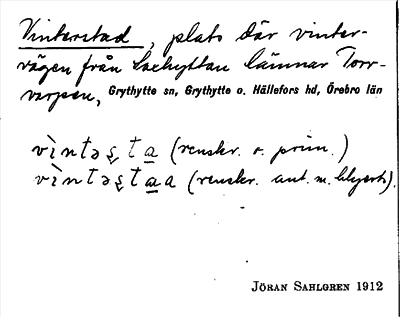 Vinterstad, plats där vinter-
vägen från Saxhyttan lämnar Torr-
varpen, Grythytte sn, Grythytte o. Hällefors hd, Örebro län
vìntəʂ ta̲ (renskr. o. prim.)
vìntəʂta̲a (renskr. ant. m. blyerts).
JÖRAN SAHLGREN 1912